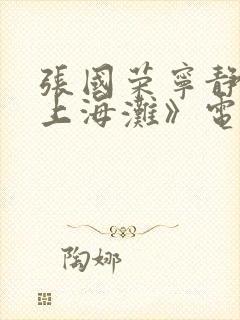 張國荣寧静
上海灘》電
陶娜